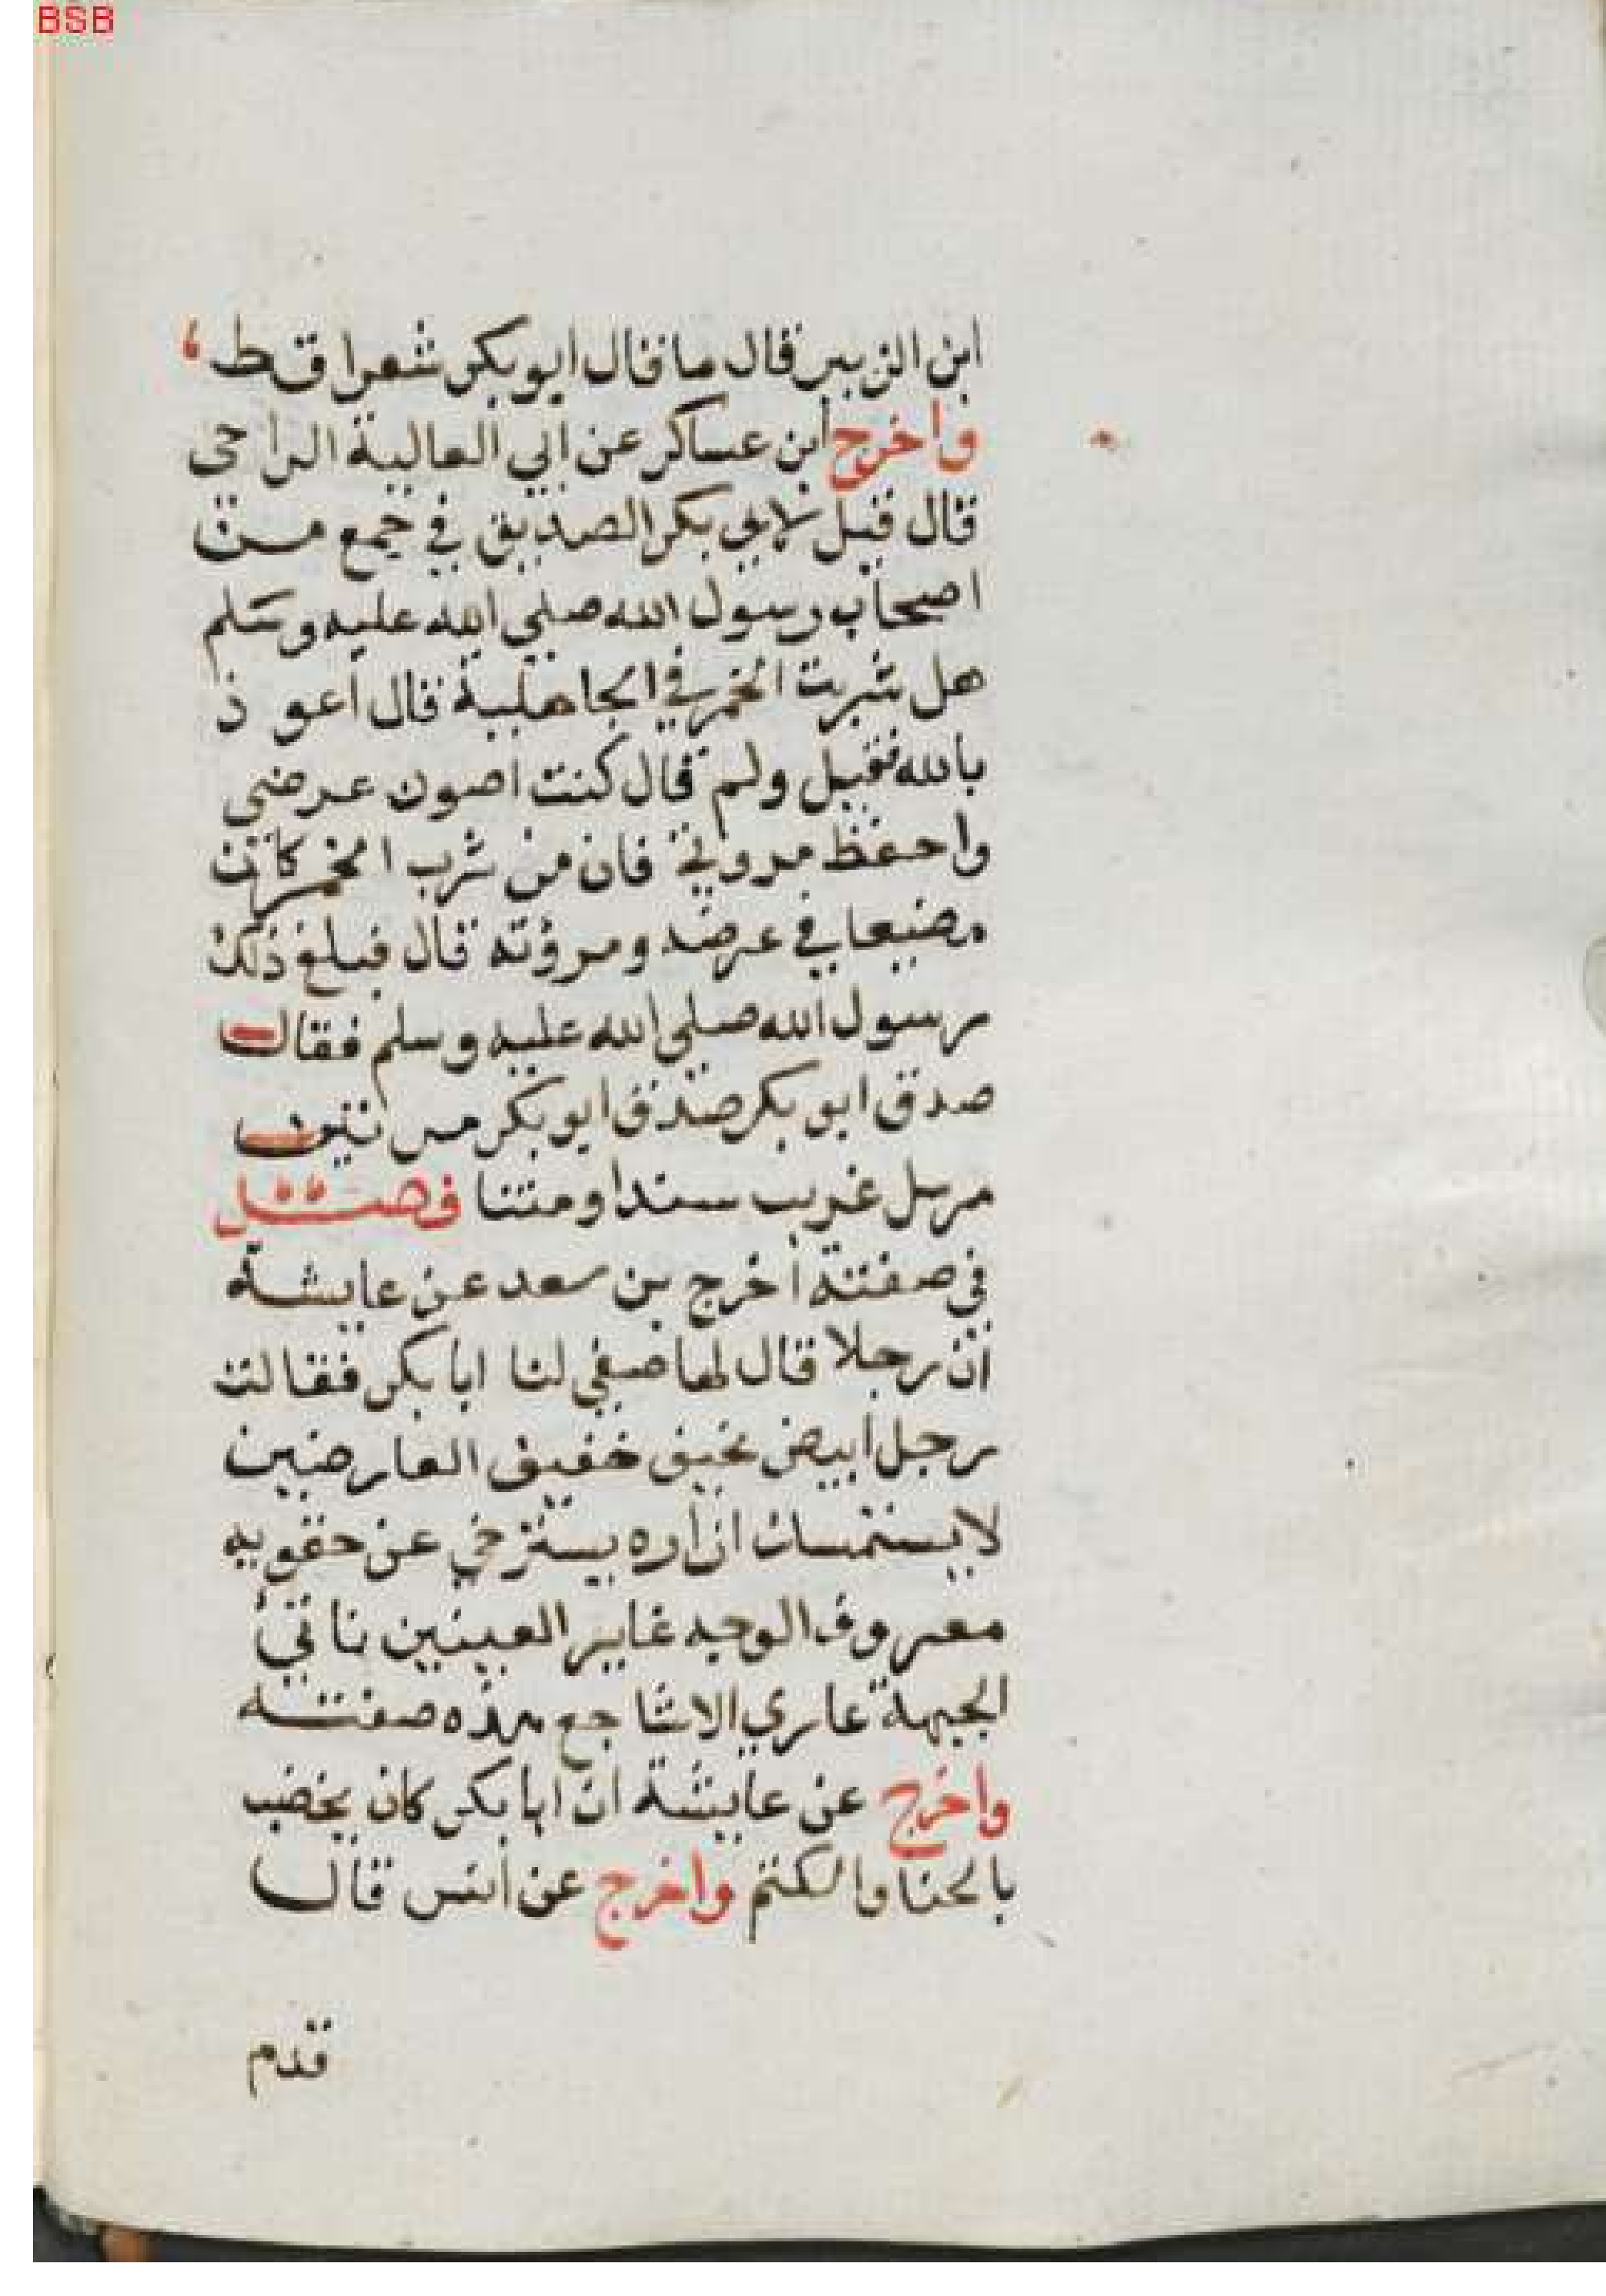 BSB
ابن الزبير قال ما قال ابو بكر شعرا قط،
واخرج ابن عساكر عن ابي العالية الراحي
قال قيل لابي بكر الصديق في جمع من
اصحاب رسول الله صلي الله عليه وسلم
هل شربت الخمر في الجاهلية قال اعوذ
بالله فقيل ولم قال كنت اصون عرضي
واحفظ مروتي فان من شرب الخمر كان
مضيعا في عرضه ومروته قال فبلغ ذلك
رسول الله صلى الله عليه وسلم فقال
صدق ابو بكر صدق ابو بكر مرتين
مرسل غريب سندا ومتنا فصل
في صفته اخرج بن سعد عن عايشة
ان رجلا قال لها صفي لنا ابا بكر فقالت
رجل ابيض نحيف خفيف العارضين
لا يستمسك ازاره يسترخي عن حقويه
معروق الوجه غاير العينين ناتئ
الجبهة عاري الاشاجع هذه صفته
واخرج عن عايشة ان ابا بكر كان يخضب
بالحنا والكتم واخرج عن انس قال
قدم